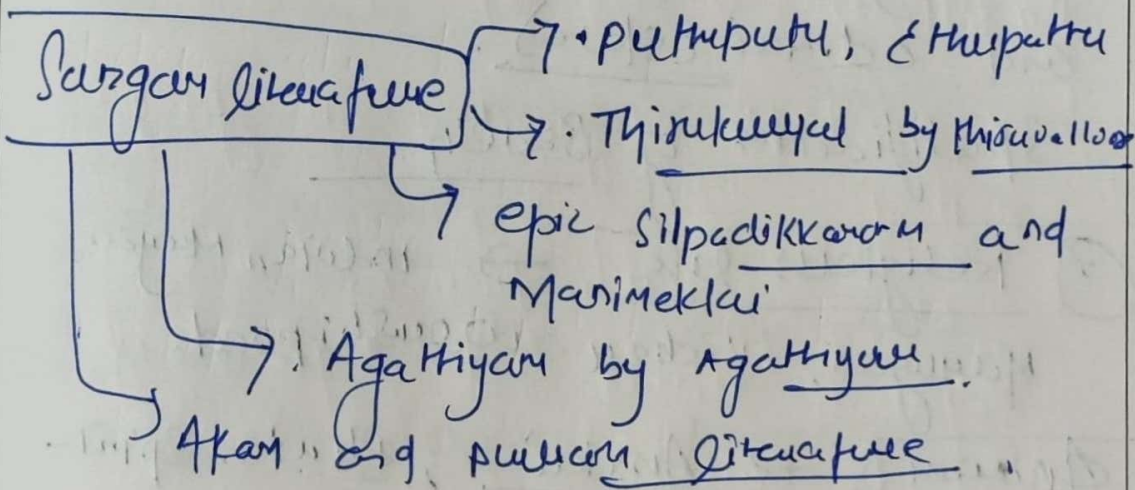 Sangam literature
→ • Puttuputu, Ettuputtu
→ • Thirukurral by thiruvalluvar
→ epic Silpadikkaram and
Manimeklai
→ • Agattiyam by Agattiyar.
→ Akam and puram literature.